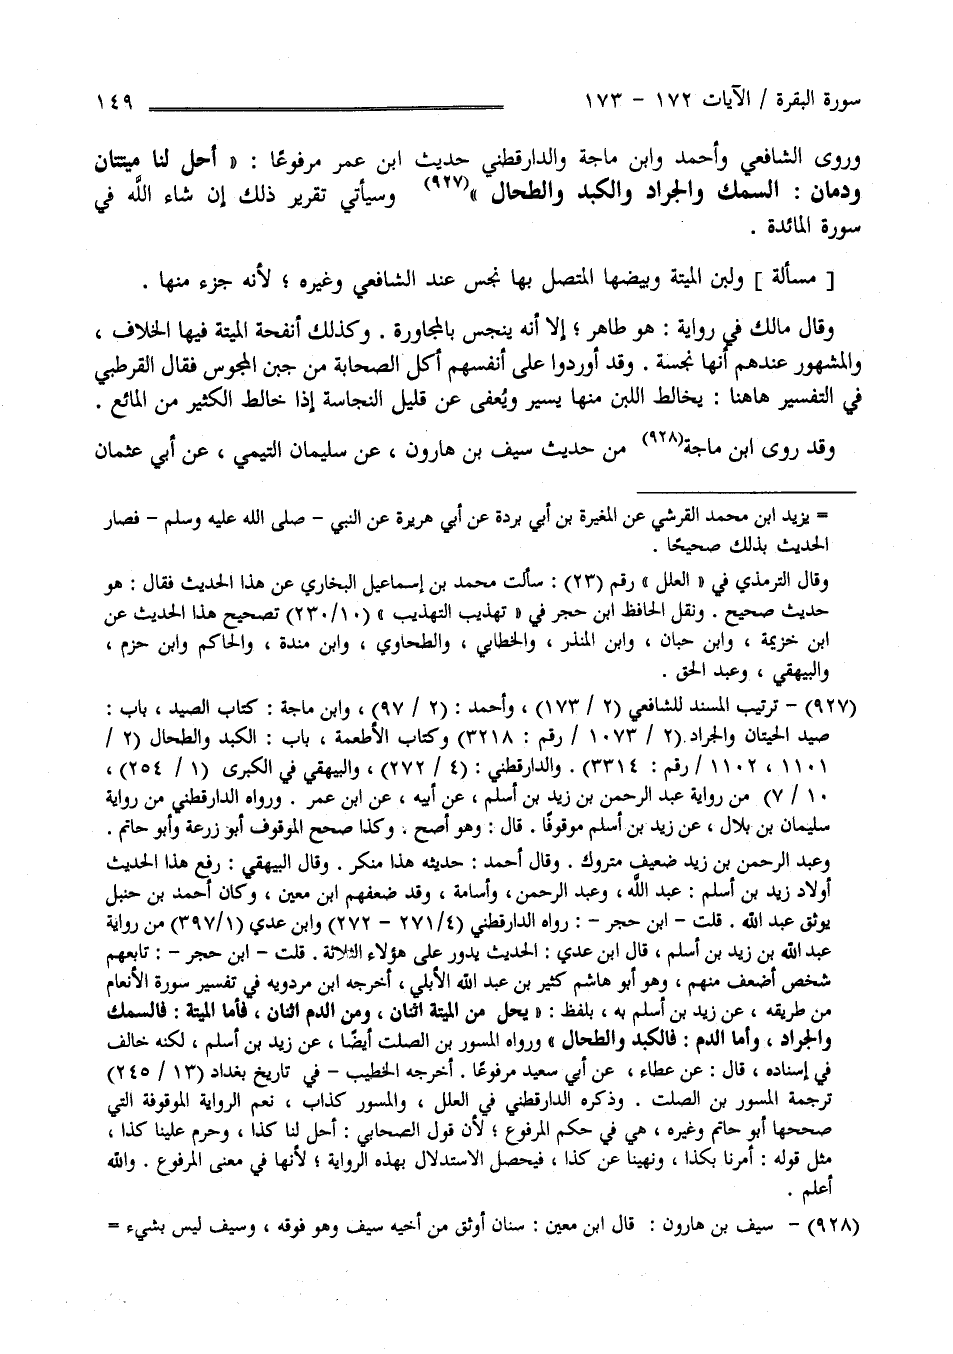 سورة البقرة / الآيات ١٧٢ - ١٧٣ ١٤٩
وروى الشافعي وأحمد وابن ماجة والدارقطني حديث ابن عمر مرفوعًا : « أحل لنا ميتتان
ودمان : السمك والجراد والكبد والطحال »(٩٢٧) وسيأتي تقرير ذلك إن شاء اللَّه في
سورة المائدة .
[ مسألة ] ولبن الميتة وبيضها المتصل بها نجس عند الشافعي وغيره ؛ لأنه جزء منها .
وقال مالك في رواية : هو طاهر ؛ إلا أنه ينجس بالمجاورة . وكذلك أنفحة الميتة فيها الخلاف ،
والمشهور عندهم أنها نجسة . وقد أوردوا على أنفسهم أكل الصحابة من جبن المجوس فقال القرطبي
في التفسير هاهنا : يخالط اللبن منها يسير ويُعفى عن قليل النجاسة إذا خالط الكثير من المائع .
وقد روى ابن ماجة(٩٢٨) من حديث سيف بن هارون ، عن سليمان التيمي ، عن أبي عثمان
= يزيد ابن محمد القرشي عن المغيرة بن أبي بردة عن أبي هريرة عن النبي - صلى الله عليه وسلم - فصار
الحديث بذلك صحيحًا .
وقال الترمذي في « العلل » رقم (٢٣) : سألت محمد بن إسماعيل البخاري عن هذا الحديث فقال : هو
حديث صحيح . ونقل الحافظ ابن حجر في « تهذيب التهذيب » (٢٣٠/١٠) تصحيح هذا الحديث عن
ابن خزيمة ، وابن حبان ، وابن المنذر ، والخطابي ، والطحاوي ، وابن مندة ، والحاكم وابن حزم ،
والبيهقي ، وعبد الحق .
(٩٢٧) - ترتيب المسند للشافعي (٢ / ١٧٣) ، وأحمد : (٢ / ٩٧) ، وابن ماجة : كتاب الصيد ، باب :
صيد الحيتان والجراد (٢ / ١٠٧٣ / رقم : ٣٢١٨) وكتاب الأطعمة ، باب : الكبد والطحال (٢ /
١١٠١ ، ١١٠٢ / رقم : ٣٣١٤) . والدارقطني : (٤ / ٢٧٢) ، والبيهقي في الكبرى (١ / ٢٥٤) ،
١٠ / ٧) من رواية عبد الرحمن بن زيد بن أسلم ، عن أبيه ، عن ابن عمر . ورواه الدارقطني من رواية
سليمان بن بلال ، عن زيد بن أسلم موقوفًا . قال : وهو أصح . وكذا صحح الموقوف أبو زرعة وأبو حاتم .
وعبد الرحمن بن زيد ضعيف متروك . وقال أحمد : حديثه هذا منكر . وقال البيهقي : رفع هذا الحديث
أولاد زيد بن أسلم : عبد اللَّه ، وعبد الرحمن ، وأسامة ، وقد ضعفهم ابن معين ، وكان أحمد بن حنبل
يوثق عبد الله . قلت - ابن حجر - : رواه الدارقطني (٢٧١/٤ - ٢٧٢) وابن عدي (٣٩٧/١) من رواية
عبد الله بن زيد بن أسلم ، قال ابن عدي : الحديث يدور على هؤلاء الثلاثة . قلت - ابن حجر - : تابعهم
شخص أضعف منهم ، وهو أبو هاشم كثير بن عبد الله الأبلي ، أخرجه ابن مردويه في تفسير سورة الأنعام
من طريقه ، عن زيد بن أسلم به ، بلفظ : « يحل من الميتة اثنان ، ومن الدم اثنان ، فأما الميتة : فالسمك
والجراد ، وأما الدم : فالكبد والطحال » ورواه المسور بن الصلت أيضًا ، عن زيد بن أسلم ، لكنه خالف
في إسناده ، قال : عن عطاء ، عن أبي سعيد مرفوعًا . أخرجه الخطيب - في تاريخ بغداد (١٣ / ٢٤٥)
ترجمة المسور بن الصلت . وذكره الدارقطني في العلل ، والمسور كذاب ، نعم الرواية الموقوفة التي
صححها أبو حاتم وغيره ، هي في حكم المرفوع ؛ لأن قول الصحابي : أحل لنا كذا ، وحرم علينا كذا ،
مثل قوله : أمرنا بكذا ، ونهينا عن كذا ، فيحصل الاستدلال بهذه الرواية ؛ لأنها في معنى المرفوع . والله
أعلم .
(٩٢٨) - سيف بن هارون : قال ابن معين : سنان أوثق من أخيه سيف وهو فوقه ، وسيف ليس بشيء =